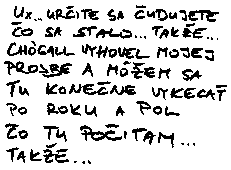 UX... URČITE SA ČUDUJETE
ČO SA STALO... TAKŽE...
CHÓCALL VYHOVEL MOJEJ
PROSBE A MÔŽEM SA
TU KONEČNE VYKECAŤ
PO ROKU A POL
ČO TU POČITAM...
TAKŽE...